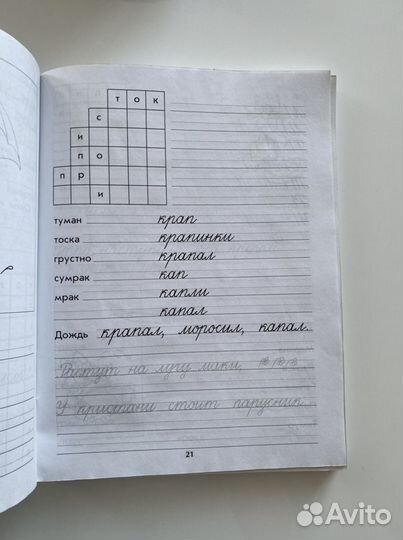 т о к
с
и
п о
п р
и
туман крап
тоска крапинки
грустно крапал
сумрак кап
мрак капли
капал
Дождь крапал, моросил, капал.
Растут на лугу маки,
У пристани стоит парусник.
21
Avito